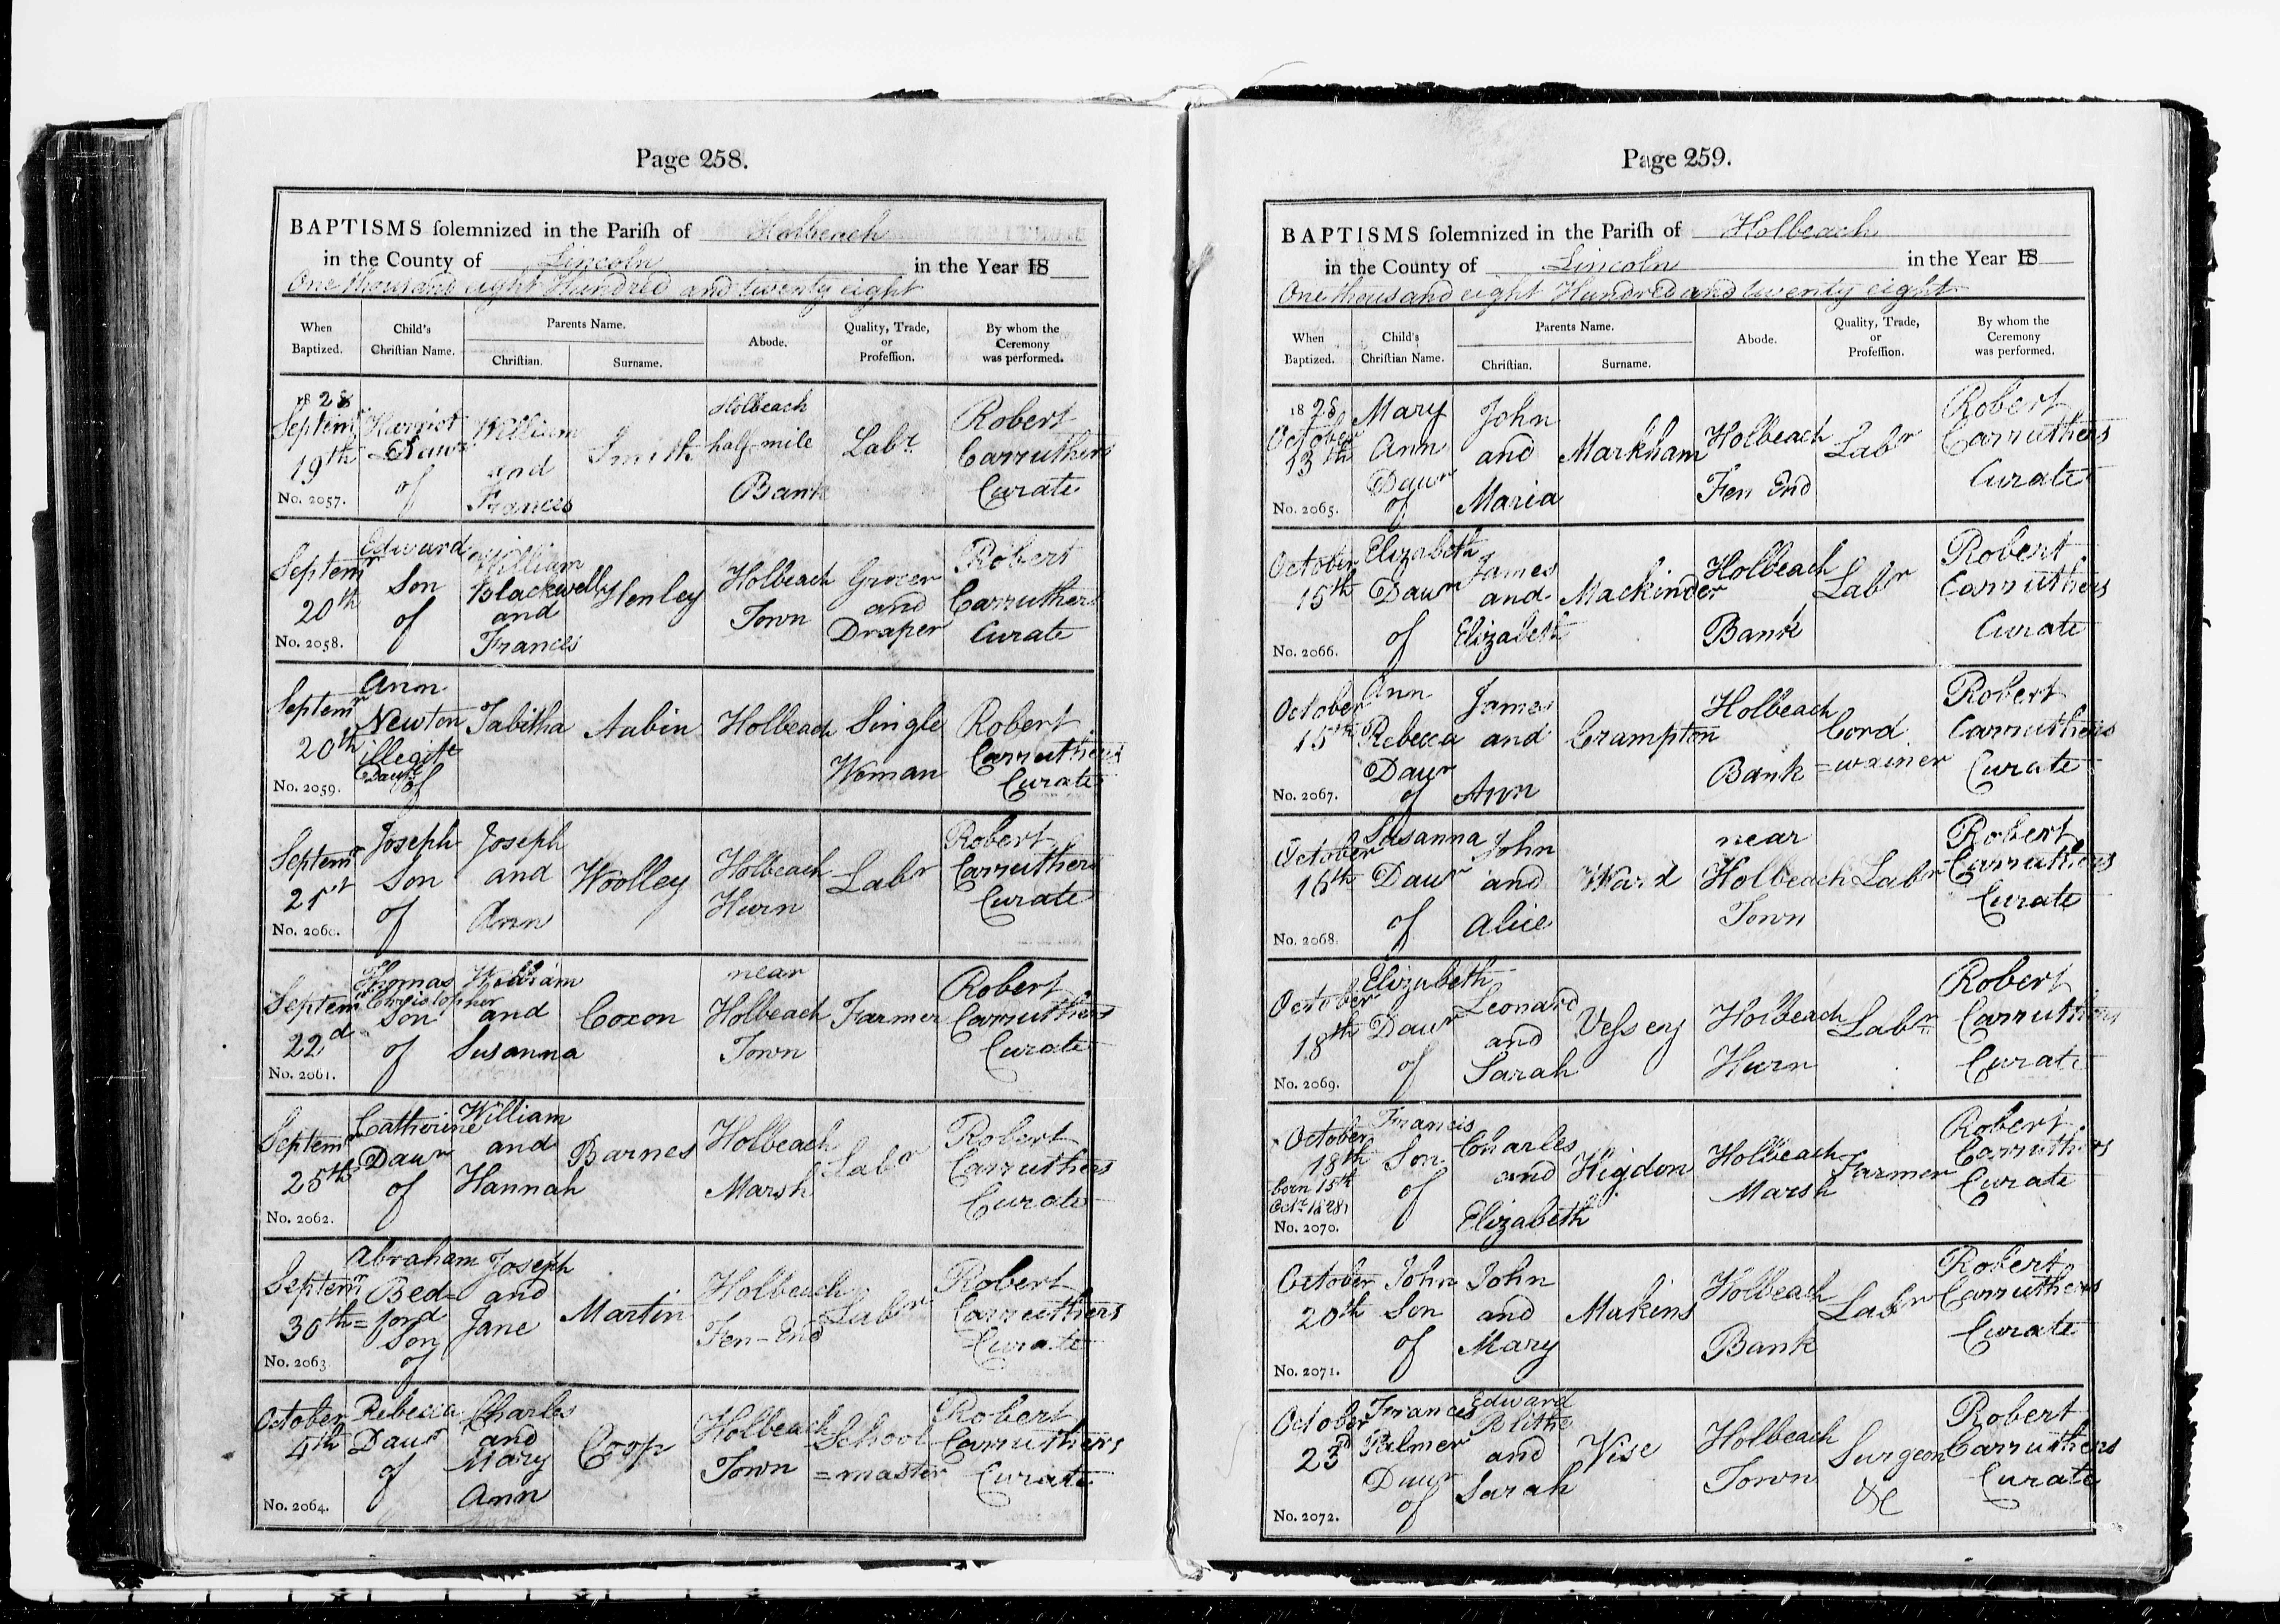 Page 258.
BAPTISMS solemnized in the Parish of Holbeach
in the County of Lincoln in the Year 18
One thousand eight Hundred and twenty eight
When Baptized.
Child's Christian Name.
Parents Name.
Christian.
Surname.
Abode.
Quality, Trade, or Profession.
By whom the Ceremony was performed.
1828
Septemr 19th
No. 2057.
Harriot Dawr of
William and Frances
Smith
Holbeach half-mile Bank
Labr
Robert Carruthers Curate
Septemr 20th
No. 2058.
Edward Son of
William Blackwell and Frances
Henley
Holbeach Town
Grocer and Draper
Robert Carruthers Curate
Septemr 20th
No. 2059.
Ann Newton illegite Dawr of
Tabitha
Aubin
Holbeach
Single Woman
Robert Carruthers Curate
Septemr 21st
No. 2060.
Joseph Son of
Joseph and Ann
Woolley
Holbeach Hurn
Labr
Robert Carruthers Curate
Septemr 22d
No. 2061.
Thomas Christopher Son of
William and Susanna
Coxon
near Holbeach Town
Farmer
Robert Carruthers Curate
Septemr 25th
No. 2062.
Catherine Dawr of
William and Hannah
Barnes
Holbeach Marsh
Labr
Robert Carruthers Curate
Septemr 30th
No. 2063.
Abraham Bed=
=ford Son of
Joseph and Jane
Martin
Holbeach Fen-End
Labr
Robert Carruthers Curate
October 4th
No. 2064.
Rebecca Dawr of
Charles and Mary Ann
Coop
Holbeach Town
School
=master
Robert Carruthers Curate
Page 259.
BAPTISMS solemnized in the Parish of Holbeach
in the County of Lincoln in the Year 18
One thousand eight Hundred and twenty eight
When Baptized.
Child's Christian Name.
Parents Name.
Christian.
Surname.
Abode.
Quality, Trade, or Profession.
By whom the Ceremony was performed.
1828
October 13th
No. 2065.
Mary Ann Dawr of
John and Maria
Markham
Holbeach Fen End
Labr
Robert Carruthers Curate
October 15th
No. 2066.
Elizabeth Dawr of
James and Elizabeth
Mackinder
Holbeach Bank
Labr
Robert Carruthers Curate
October 15th
No. 2067.
Ann Rebecca Dawr of
James and Ann
Crampton
Holbeach Bank
Cord
=wainer
Robert Carruthers Curate
October 16th
No. 2068.
Susanna Dawr of
John and Alice
Ward
near Holbeach Town
Labr
Robert Carruthers Curate
October 18th
No. 2069.
Elizabeth Dawr of
Leonard and Sarah
Vessey
Holbeach Hurn
Labr
Robert Carruthers Curate
October 18th
born 15th Octr 1828
No. 2070.
Francis Son of
Charles and Elizabeth
Higdon
Holbeach Marsh
Farmer
Robert Carruthers Curate
October 20th
No. 2071.
John Son of
John and Mary
Makins
Holbeach Bank
Labr
Robert Carruthers Curate
October 23d
No. 2072.
Frances Dawr of
Edward Blithe and Sarah
Vise
Holbeach Town
Surgeon &c
Robert Carruthers Curate